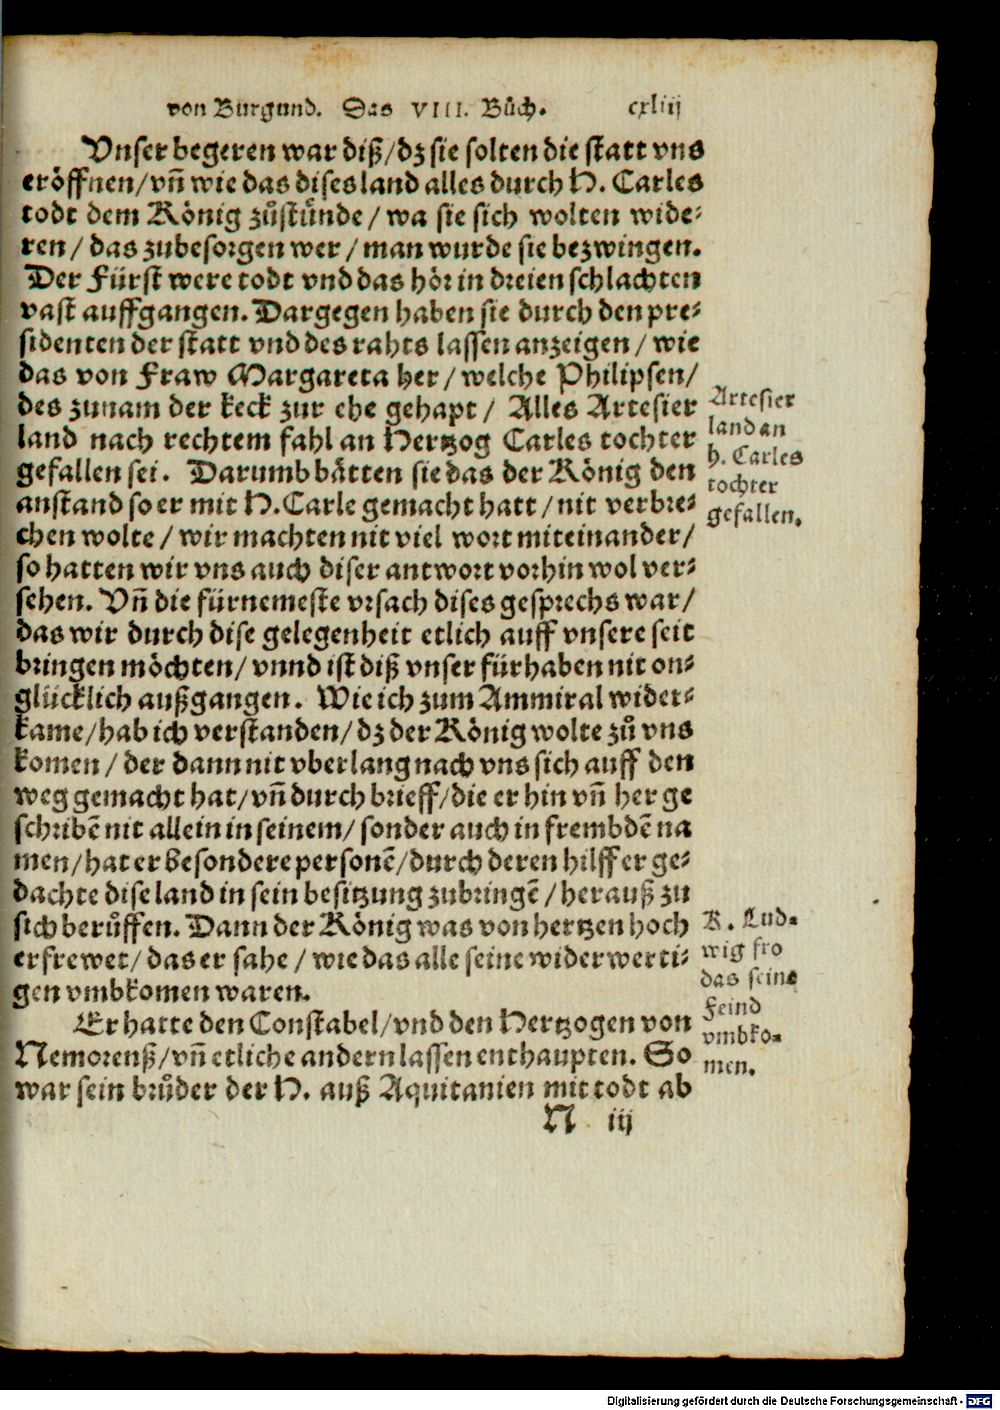 von Burgund. Das VIII. Bůch. cxliij
Vnser begeren war diß/dz sie solten die statt vns
eröffnen/vn̄ wie das dises land alles durch H. Carles
todt dem König zůstůnde/wa sie sich wolten wide⸗
ren/das zubesorgen wer/man wurde sie bezwingen.
Der Fürst were todt vnd das hör in dreien schlachten
vast auffgangen. Dargegen haben sie durch den pre⸗
sidenten der statt vnd des rahts lassen anzeigen/wie
das von Fraw Margareta her/welche Philipsen/
des zunam der keck zur ehe gehapt/ Alles Artesier
land nach rechtem fahl an Hertzog Carles tochter
gefallen sei. Darumb bätten sie das der König den
anstand so er mit H. Carle gemacht hatt/nit verbre⸗
chen wolte/wir machten nit viel wort miteinander/
so hatten wir vns auch diser antwort vorhin wol ver⸗
sehen. Vn̄ die fürnemeste vrsach dises gesprechs war/
das wir durch dise gelegenheit etlich auff vnsere seit
bringen möchten/vnnd ist diß vnser fürhaben nit on⸗
glücklich außgangen. Wie ich zum Ammiral wider⸗
kame/hab ich verstanden/dz der König wolte zů vns
komen/der dann nit vberlang nach vns sich auff den
weg gemacht hat/vn̄ durch brieff/die er hin vn̄ her ge
schribē nit allein in seinem/sonder auch in frembdē na
men/hat er besondere personē/durch deren hilff er ge⸗
dachte dise land in sein besitzung zubringē/herauß zu
sich berůffen. Dann der König was von hertzen hoch
erfrewet/das er sahe/wie das alle seine widerwerti⸗
gen vmbkomen waren.
Er hatte den Constabel/vnd den Hertzogen von
Nemorenß/vn̄ etliche andern lassen enthaupten. So
war sein brůder der H. auß Aquitanien mit todt ab
N iij
Artesier
land an
h. Carles
tochter
gefallen.
K. Lud⸗
wig fro
das seine
Feind
vmbko⸗
men.
Digitalisierung gefördert durch die Deutsche Forschungsgemeinschaft - DFG